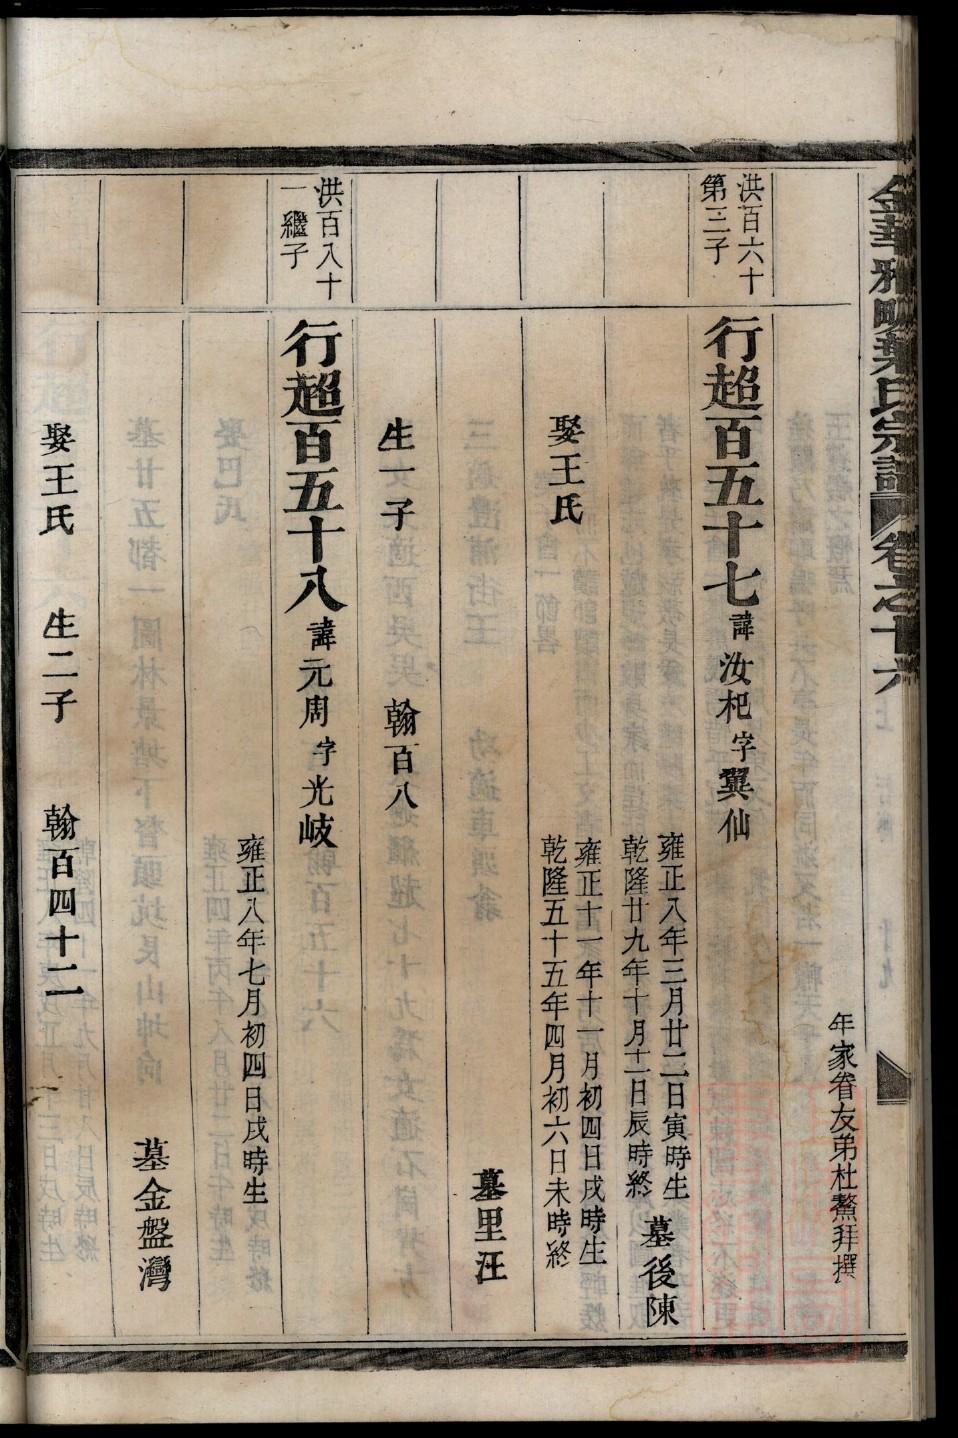 金華雅畈葉氏宗譜 卷之十六
年家眷友弟杜鰲拜撰
洪百六十
第三子
行超百五十七 諱汝杞字翼仙
雍正八年三月廿二日寅時生
乾隆廿九年十月十二日辰時終
墓後陳
娶王氏
雍正十一年十一月初四日戌時生
乾隆五十五年四月初六日未時終
墓里汪
生一子 翰百八
洪百八十
一繼子
行超百五十八 諱元周字光岐
雍正八年七月初四日戌時生
墓金盤灣
娶王氏 生二子 翰百四十二